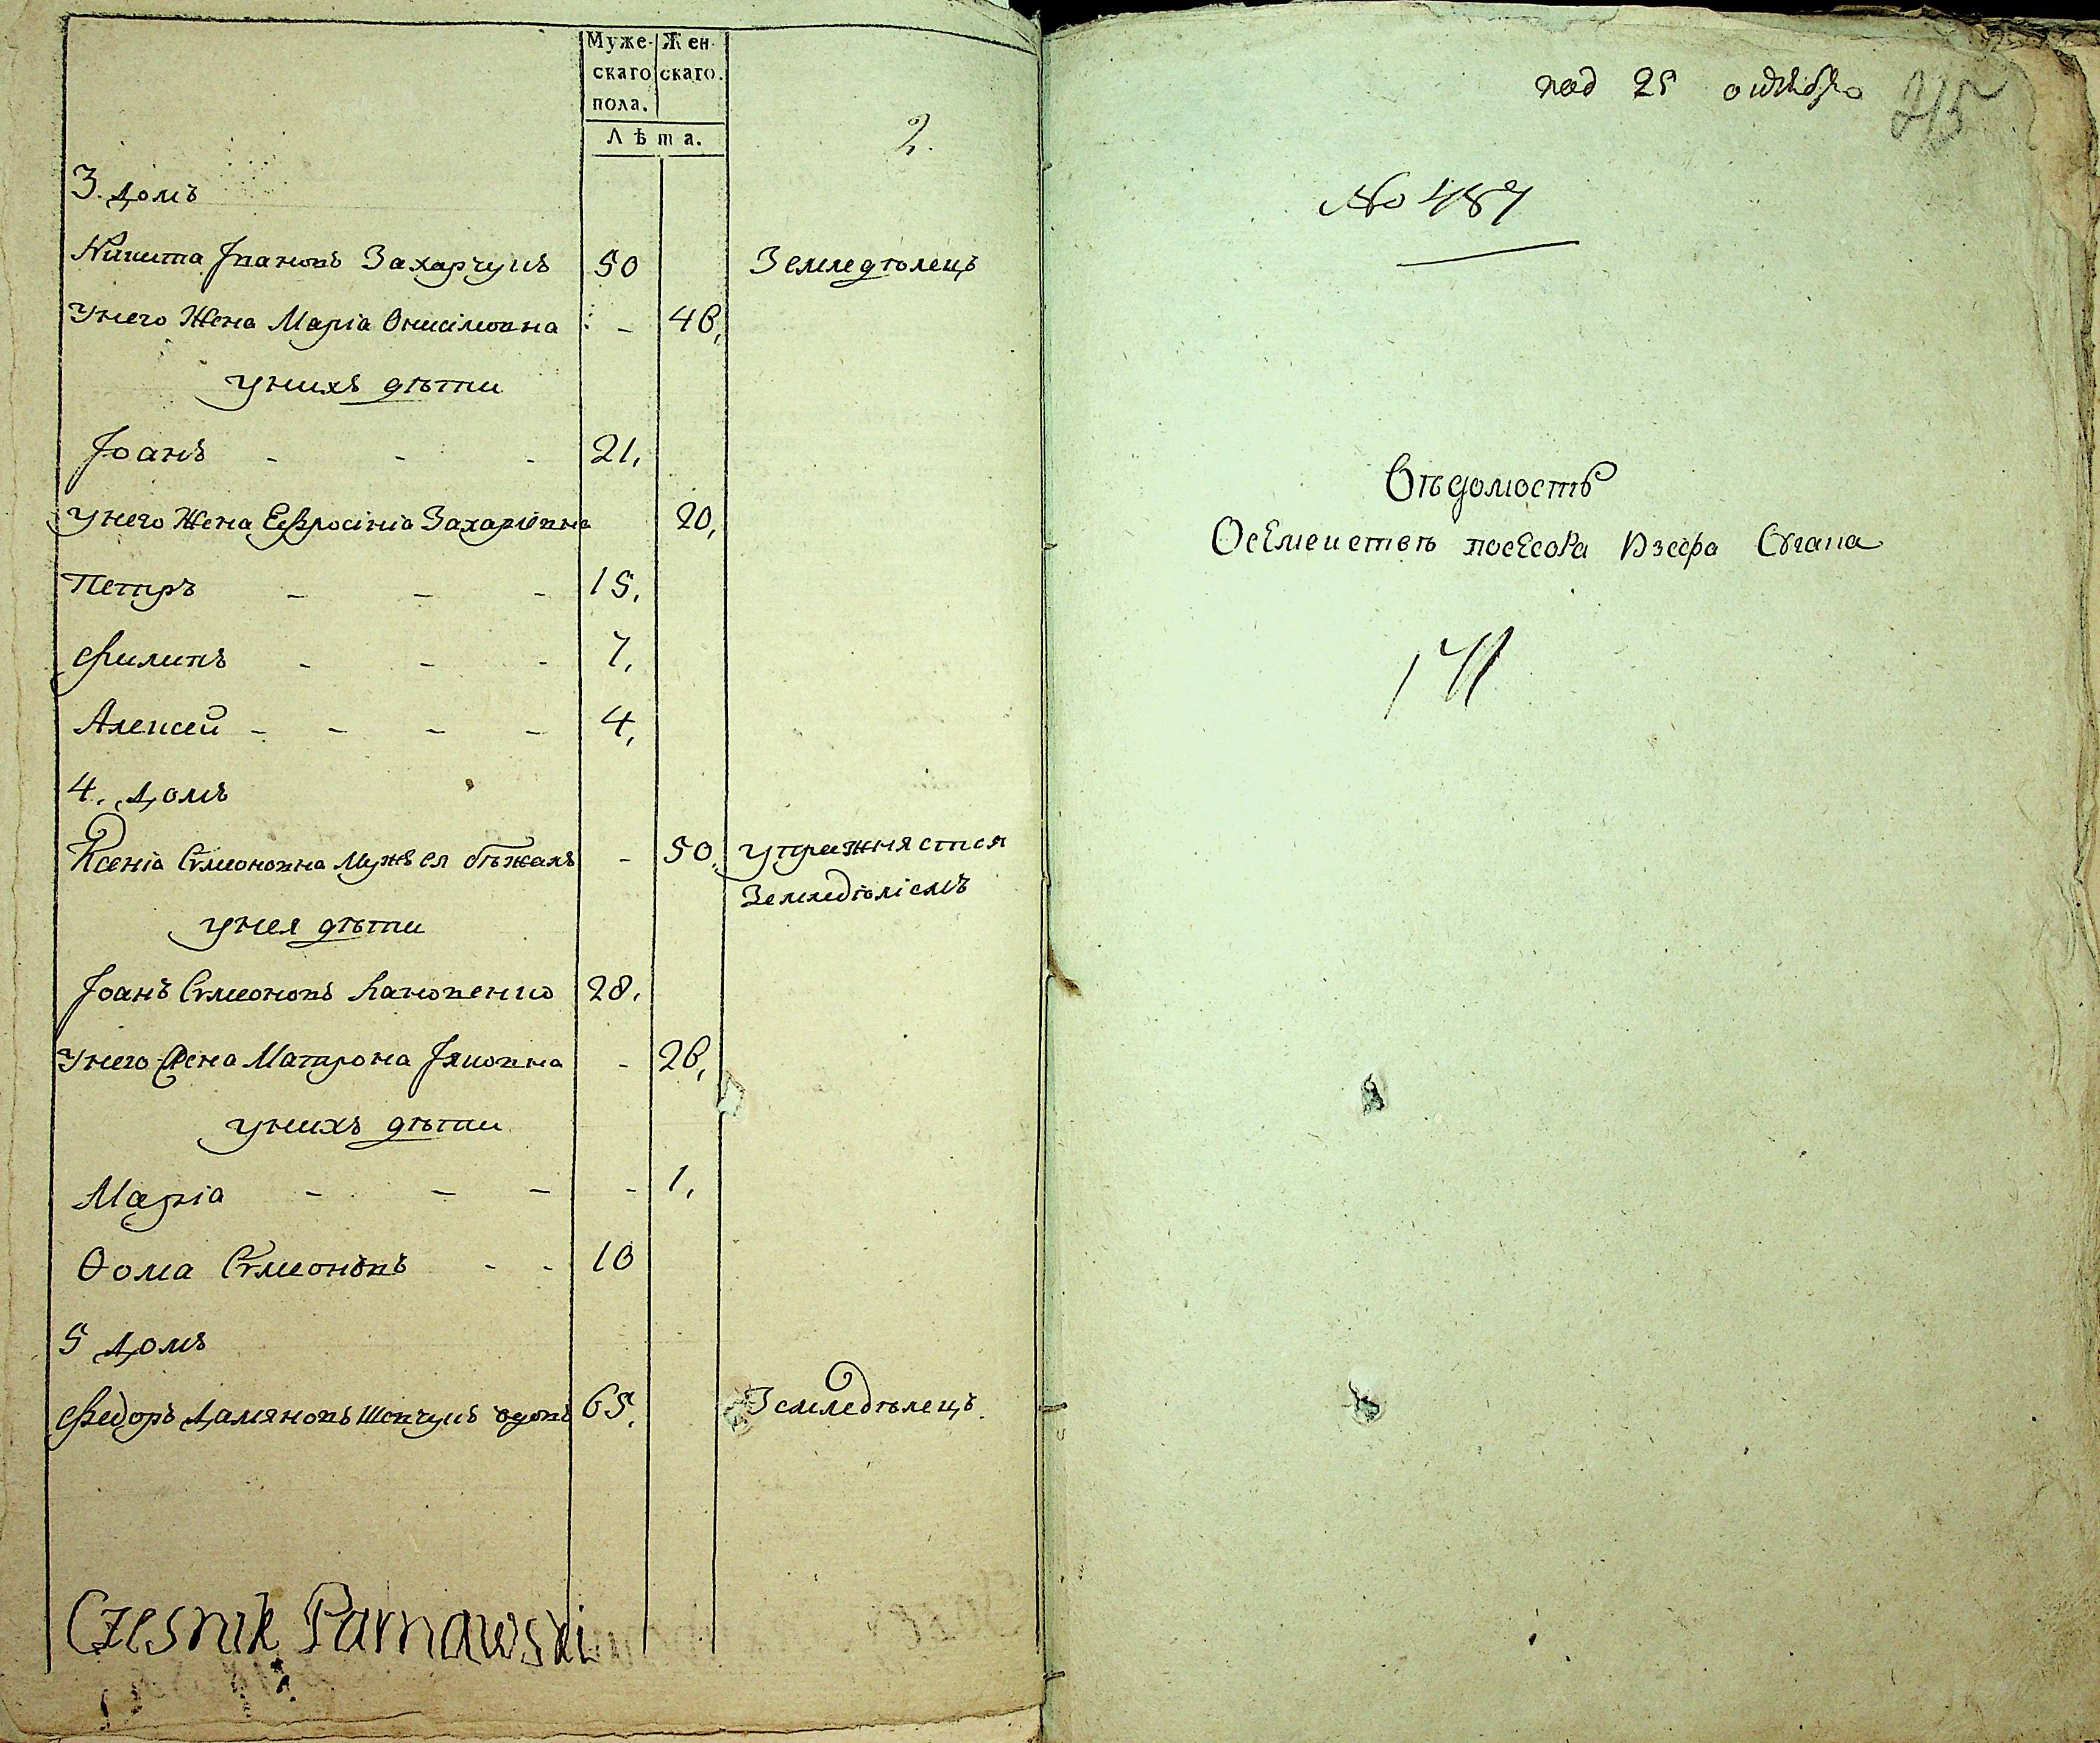 Муже-
скаго
пола.
Жен-
скаго.
Лѣта.
2.
3. домъ
Никита Јвановъ Захарчукъ 50 Земледѣлецъ
Унего Жена Маріа Онисімовна - 46,
унихъ дѣти
Јоанъ - - - 21,
Унего Жена Ефросініа Захаріевна 20,
Петръ - - - 15,
Филипъ - - - 7,
Алексей - - - - 4,
4. домъ
Ксеніа Сѵмеоновна Мужъ ея бѣжалъ - 50, упражняется
Земледѣліемъ
унея дѣти
Јоанъ Сѵмеоновъ 28,
Унего Жена Матрона - 26,
унихъ дѣти
Маріа - - - - 1,
Ѳома Сѵмеоновъ - - 16
5 домъ
Федоръ Дамяновъ Шевчукъ вдовъ 65, Земледѣлецъ
Czesnik Parnawski
под 25 октября
215
№ 487
Вѣдомость
Осемействѣ посесора Сѵгана